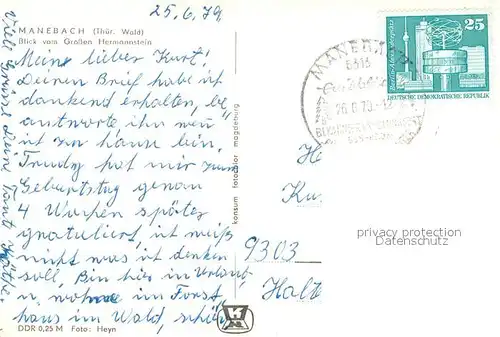 25.6.79
MANEBACH (Thür. Wald)
Blick vom Großen Hermannstein
Meine lieber Kurt!
Deinen Brief habe ich
dankend erhalten, be
antworte ihn wenn
ich zu hause bin.
Trudy hat mir zum
Geburtstag genau
4 Wochen später
gratuliert, ich weiß
nicht was ich denken
soll, Bin hier in Urlaub
u. wohne im Forst
haus im Wald, schön
Viele Grüsse Deine Tante
konsum fotocolor magdeburg
DDR 0,25 M Foto: Heyn
25
DEUTSCHE DEMOKRATISCHE REPUBLIK
MANEBACH
6315
26.6.79
He
Ku
9303
Halt
privacy protection
Datenschutz